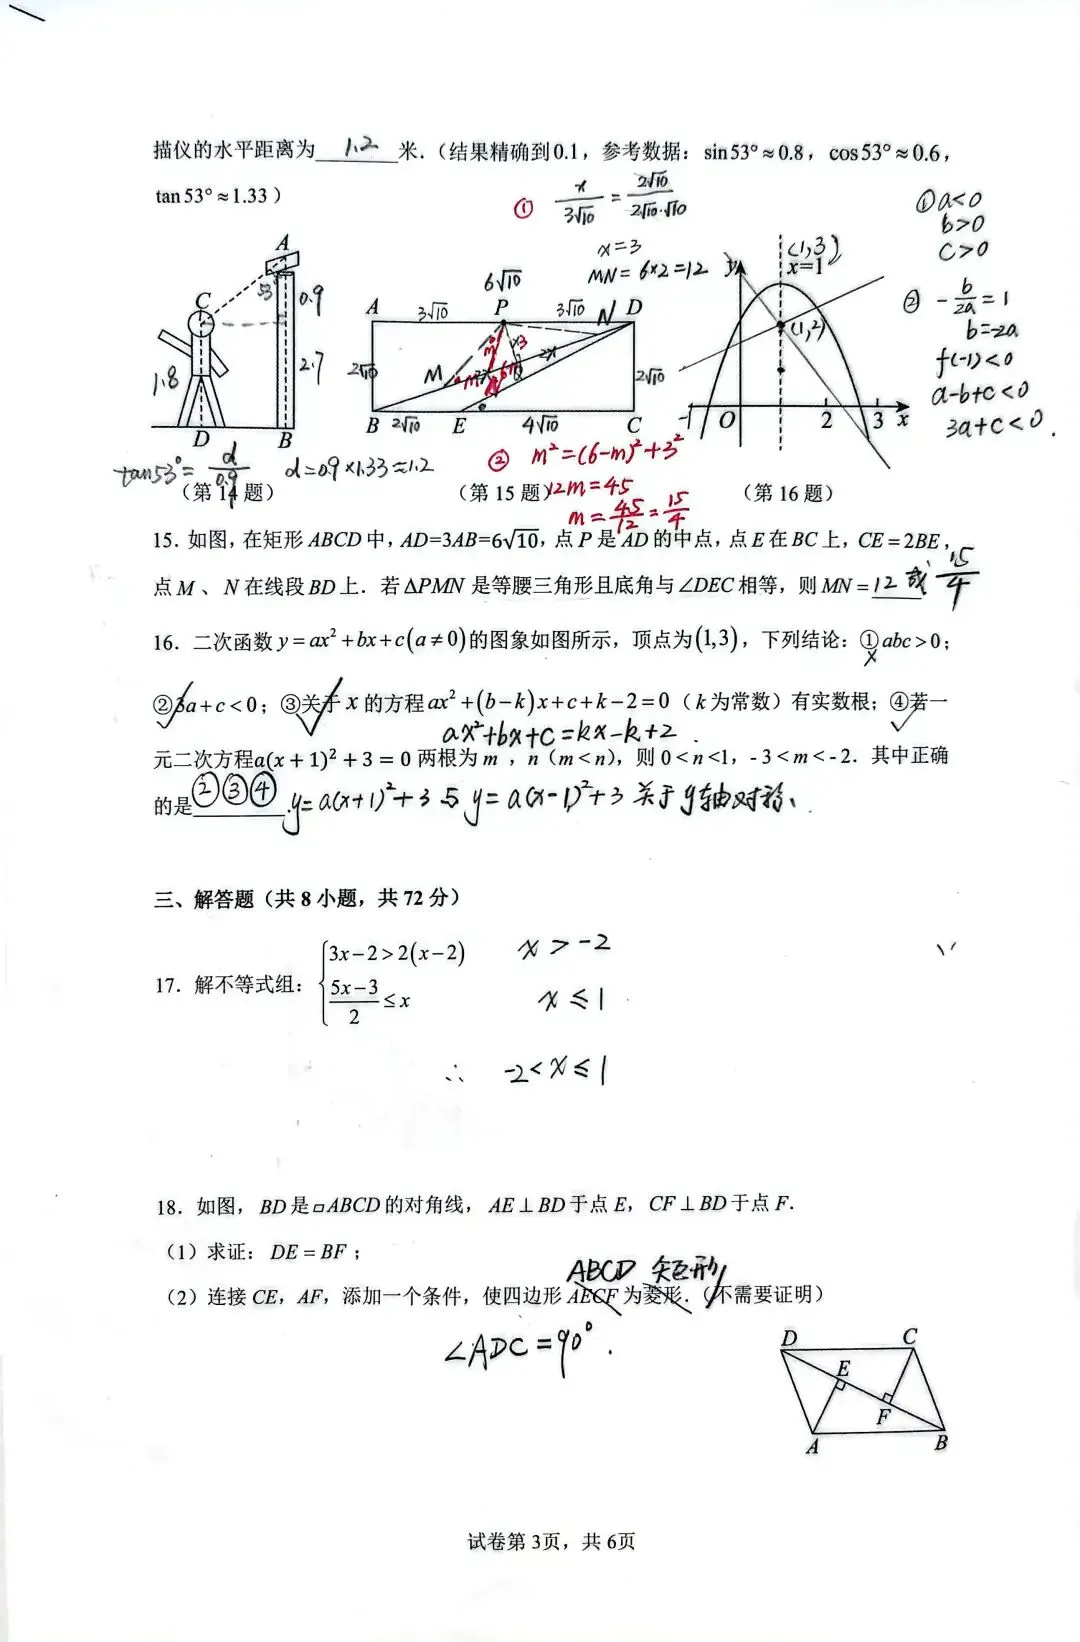 描仪的水平距离为 1.2 米.（结果精确到0.1，参考数据：sin53°≈0.8，cos53°≈0.6，
tan53°≈1.33）
① x/3√10 = 2√10/2√10·√10
x=3
MN=6×2=12
①a<0
b>0
c>0
② -b/2a=1
b=-2a
f(-1)<0
a-b+c<0
3a+c<0.
A
C
53°
0.9
2.7
1.8
D
B
tan53°=d/0.9 d=0.9×1.33≈1.2
（第 14 题）
6√10
A 3√10 P 3√10 N D
2√10
M
2√10
B 2√10 E 4√10 C
② m²=(6-m)²+3²
12m=45
m=45/12=15/4
（第 15 题）
y
(1,3)
x=1
(1,2)
-1 O 2 3 x
（第 16 题）
15．如图，在矩形 ABCD 中，AD=3AB=6√10，点 P 是 AD 的中点，点 E 在 BC 上，CE=2BE，
点 M 、N 在线段 BD 上．若 ΔPMN 是等腰三角形且底角与 ∠DEC 相等，则 MN = 12 或 15/4
16．二次函数 y=ax²+bx+c(a≠0)的图象如图所示，顶点为(1,3)，下列结论：①abc>0；
②3a+c<0；③关于 x 的方程 ax²+(b−k)x+c+k−2=0（k 为常数）有实数根；④若一
ax²+bx+c=kx-k+2
元二次方程a(x+1)²+3=0 两根为 m ，n（m<n），则 0<n<1，-3<m<-2．其中正确
的是 ②③④ . y=a(x+1)²+3 与 y=a(x-1)²+3 关于y轴对称、
三、解答题（共 8 小题，共 72 分）
17．解不等式组：{3x−2>2(x−2) x>-2
(5x−3)/2≤x x≤1
∴ -2<x≤1
18．如图，BD 是▱ABCD 的对角线，AE⊥BD 于点 E，CF⊥BD 于点 F.
（1）求证：DE=BF；
ABCD 矩形
（2）连接 CE，AF，添加一个条件，使四边形 AECF 为菱形．（不需要证明）
∠ADC=90°.
D C
E
F
A B
试卷第 3页，共 6页